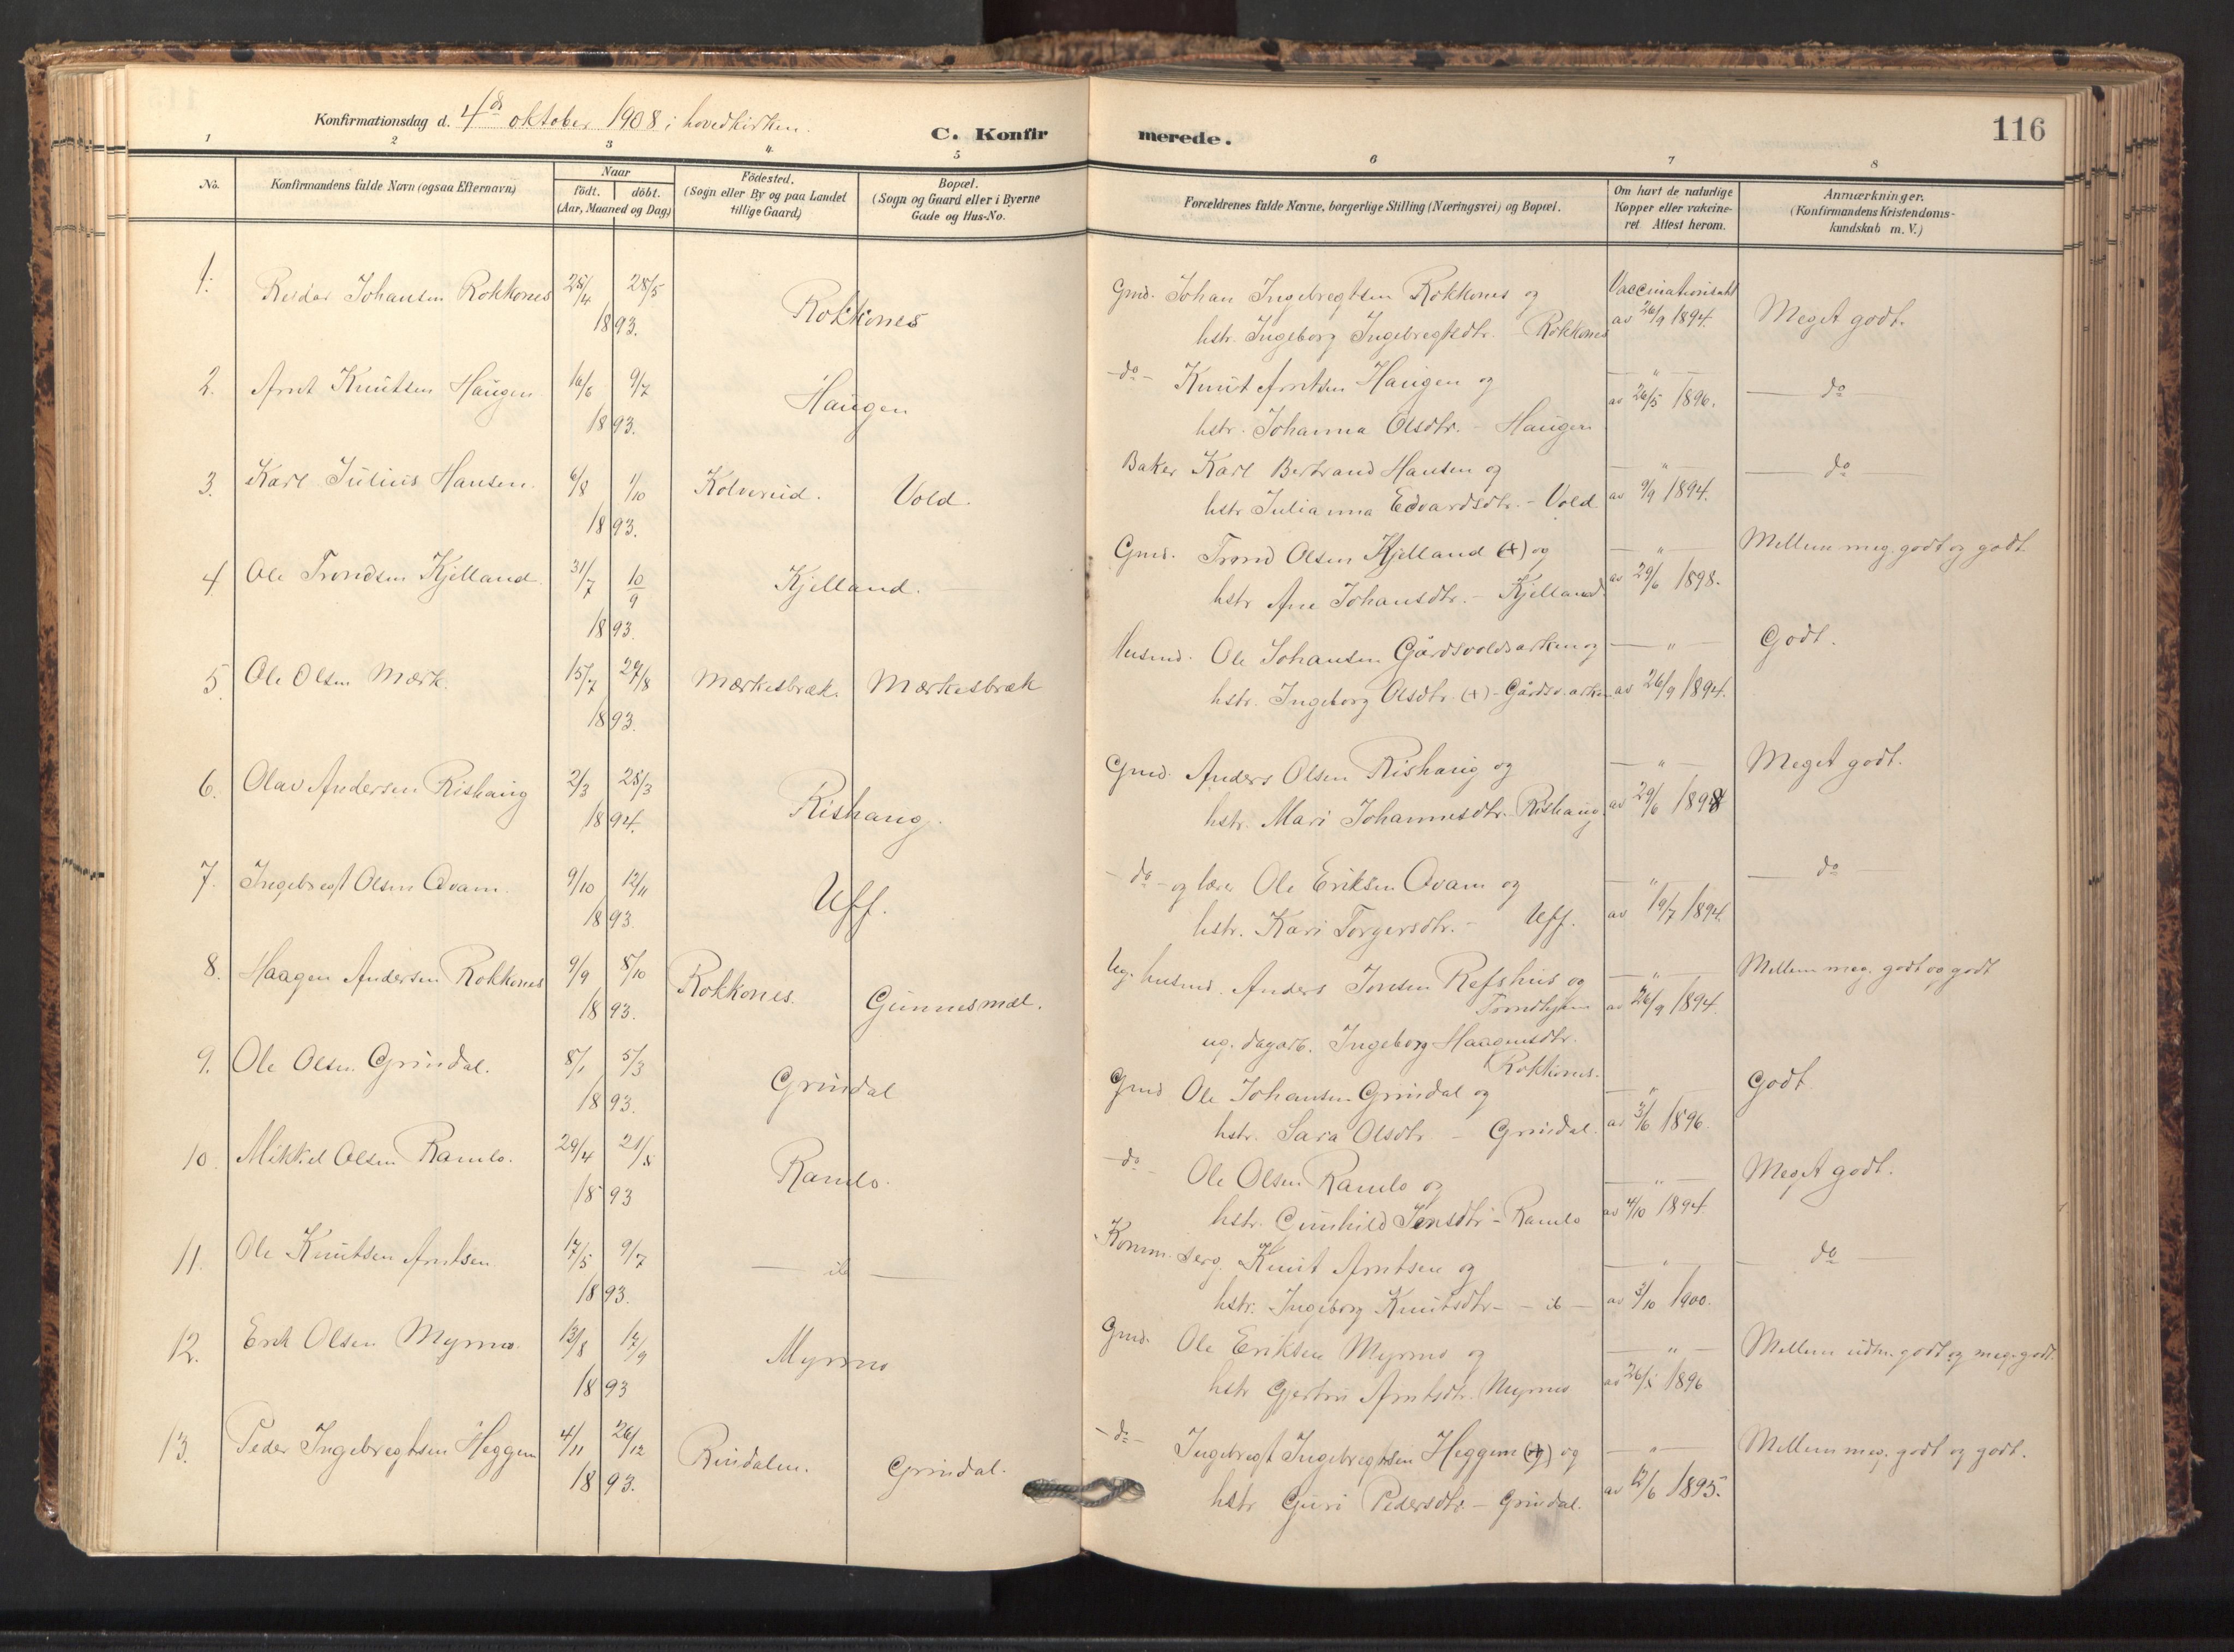 116
Konfirmationsdag d. 4de oktober 1908 i hovedkirken.
C. Konfirmerede.
1 2 3 4 5 6 7 8
No.
Konfirmandens fulde Navn (ogsaa Efternavn)
Naar
födt. döbt.
(Aar, Maaned og Dag)
Födested.
(Sogn eller By og paa Landet
tillige Gaard)
Bopæl.
(Sogn og Gaard eller i Byerne
Gade og Hus-No.
Forældrenes fulde Navne, borgerlige Stilling (Næringsvei) og Bopæl.
Om havt de naturlige
Kopper eller vakcine-
ret Attest herom.
Anmærkninger.
(Konfirmandens Kristendoms-
kundskab m. V.)
1. Reidar Johansen Rokkones 25/4 28/5 Rokkones Gmd. Johan Ingebregtsen Rokkones og Vaccinationsatt Meget godt.
1893. hstr. Ingeborg Ingebregtsdtr. Rokkones av 26/9 1894.
2. Arnt Knutsen Haugen 16/6 9/7 Haugen -do- Knut Arntsen Haugen og — " — — do —
1893. hstr. Johanna Olsdtr. - Haugen av 26/5 1896.
3. Karl Julius Hansen. 6/8 1/10 Kolverid. Vold. Baker Karl Bertrand Hansen og — " — — do
1893. hstr Julianna Edvardsdtr. - Vold av 9/9 1894.
4 Ole Trondsen Kjelland. 31/7 10/9 Kjelland. Gmd. Trond Olsen Kjelland (+) og — " — Mellem meg. godt og godt
1893. hstr Ane Johansdtr. - Kjelland. av 29/6 1898.
5. Ole Olsen Mærk. 15/7 27/8 Mærkesbræk. Mærkesbræk Husmd. Ole Johansen Gårdsvoldsarken og — " — Godt.
1893. hstr. Ingeborg Olsdtr. (+) - Gårdsv.arken av 26/9 1894.
6. Olav Andersen Rishaug 2/3 25/3 Rishaug. Gmd. Anders Olsen Rishaug og — " — Meget godt.
1894. hstr. Mari Johannesdtr. Rishaug. av 29/6 1898
7. Ingebregt Olsen Qvam. 9/10 12/11 Uff. - do - og lærer Ole Eriksen Qvam og — " — — do —
1893. hstr. Kari Torgersdtr. - Uff. av 19/7 1894.
8. Haagen Andersen Rokkones 9/9 8/10 Rokkones. Gunnesmæl. Ug. husmd. Anders Jonsen Refshus og — " — Mellem meg. godt og godt
Trondhjem
1893. ug. dagarb. Ingeborg Haagensdtr. av 26/9 1894.
Rokkones.
9. Ole Olsen Grindal. 8/1 5/3 Grindal Gmd Ole Johansen Grindal og — " — Godt
1893. hstr. Sara Olsdtr - Grindal. av 3/6 1896.
10. Mikkel Olsen Ramlo. 29/4 21/5 Ramlo. - do - Ole Olsen Ramlo og — " — Meget godt.
1893 hstr. Gunhild Jensdtr - Ramlo av 4/10 1894.
11. Ole Knutsen Arntsen 17/5 9/7 — ib — Komm. serg. Knut Arntsen og — " — — do
1893. hstr. Ingeborg Knutsdtr - - ib - av 3/10 1900.
12. Erik Olsen Myrmo. 13/8 17/9 Myrmo Gmd. Ole Eriksen Myrmo og — " — Mellem udm. godt og meg. godt.
1893 hstr Gjertru Arntsdtr. Myrmo av 26/5 1896
13. Peder Ingebregtsen Heggem 4/11 26/12 Rindalen. Grindal. - do - Ingebregt Ingebregtsen Heggem (+) og — " — Mellem meg. godt og godt.
1893. hstr Guri Pedersdtr - Grindal. av 12/6 1895.